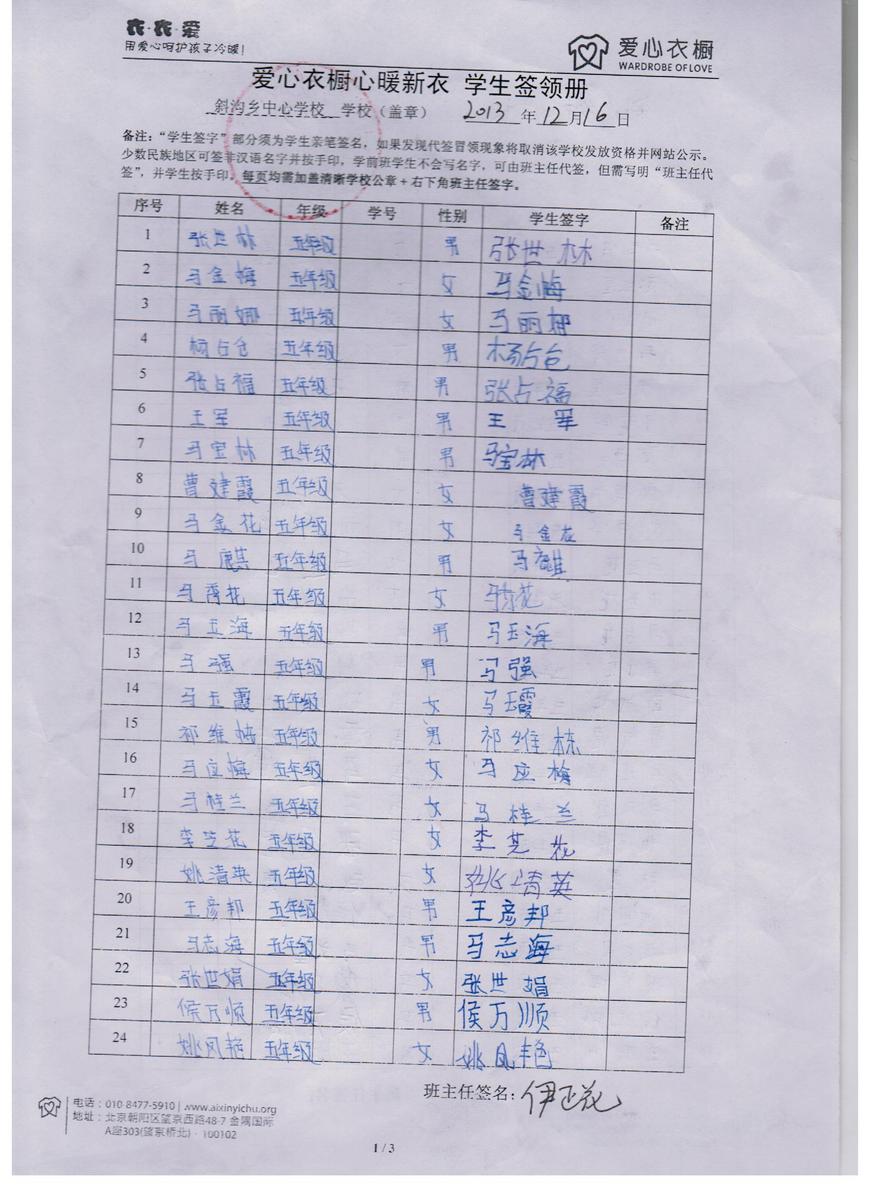 衣·衣·爱
用爱心呵护孩子冷暖!
爱心衣橱
WARDROBE OF LOVE
爱心衣橱心暖新衣 学生签领册
斜沟乡中心学校 学校（盖章） 2013 年 12 月 16 日
备注：“学生签字”部分须为学生亲笔签名，如果发现代签冒领现象将取消该学校发放资格并网站公示。
少数民族地区可签非汉语名字并按手印，学前班学生不会写名字，可由班主任代签，但需写明“班主任代
签”，并学生按手印。每页均需加盖清晰学校公章+右下角班主任签字。
序号 姓名 年级 学号 性别 学生签字 备注
1 张世林 五年级 男 张世林
2 马金梅 五年级 女 马金梅
3 马丽娜 五年级 女 马丽娜
4 杨占仓 五年级 男 杨占仓
5 张占福 五年级 男 张占福
6 王军 五年级 男 王军
7 马宝林 五年级 男 马宝林
8 曹建霞 五年级 女 曹建霞
9 马金花 五年级 女 马金花
10 马麒 五年级 男
11 五年级 女
12 马玉海 五年级 男 马玉海
13 马强 五年级 男 马强
14 马玉霞 五年级 女 马玉霞
15 祁维栋 五年级 男 祁维栋
16 马应梅 五年级 女 马应梅
17 马桂兰 五年级 女 马桂兰
18 李芝花 五年级 女 李芝花
19 姚清英 五年级 女 姚清英
20 王彦邦 五年级 男 王彦邦
21 马志海 五年级 男 马志海
22 张世娟 五年级 女 张世娟
23 侯万顺 五年级 男 侯万顺
24 姚凤艳 五年级 女 姚凤艳
班主任签名：伊正花
电话：010-8477-5910 | www.aixinyichu.org
地址：北京朝阳区望京西路48-7 金隅国际
A座303(望京桥北) · 100102
1 / 3